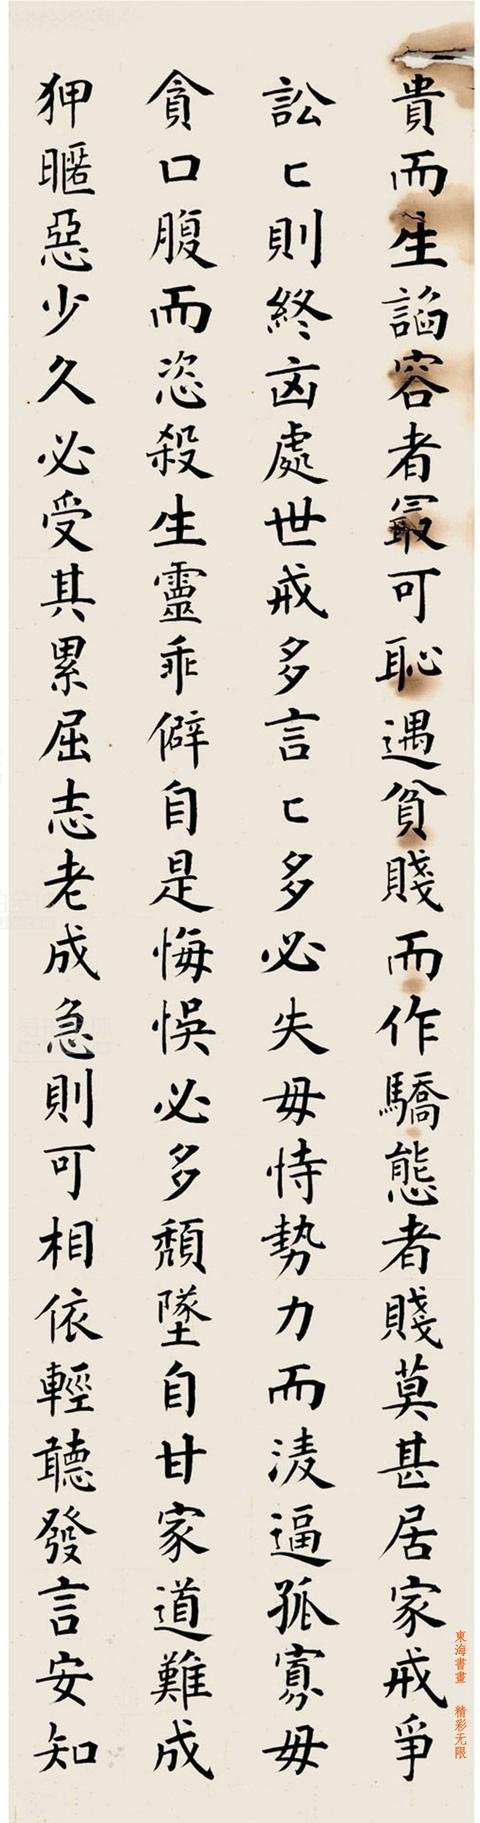 貴而生諂容者最可恥遇貧賤而作驕態者賤莫甚居家戒爭
訟匕則終凶處世戒多言匕多必失毋恃勢力而淩逼孤寡毋
貪口腹而恣殺生靈乖僻自是悔悞必多頹墜自甘家道難成
狎暱惡少久必受其累屈志老成急則可相依輕聽發言安知
東海書畫 精彩无限